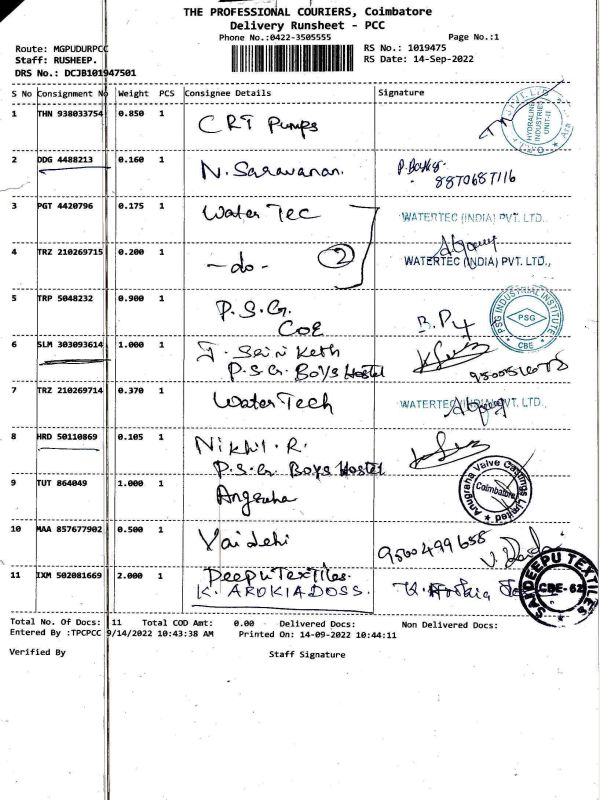 THE PROFESSIONAL COURIERS, Coimbatore
Delivery Runsheet - PCC
Phone No.:0422-3505555 Page No.:1
Route: MGPUDURPCC RS No.: 1019475
Staff: RUSHEEP. RS Date: 14-Sep-2022
DRS No.: DCJB101947501
S No Consignment No Weight PCS Consignee Details Signature
1 THN 938033754 0.850 1 CRI Pumps
HYDRALINE INDUSTRIES UNIT-II
2 DDG 4488213 0.160 1 N. Saravanan.
8870687116
3 PGT 4420796 0.175 1 Water Tec WATERTEC (INDIA) PVT. LTD.,
4 TRZ 210269715 0.200 1 -do- 2 WATERTEC (INDIA) PVT. LTD.,
5 TRP 5048232 0.900 1 P.S.G.
COE
PSG INDUSTRIAL INSTITUTE
PSG
CBE
6 SLM 303093614 1.000 1
P.S.G. Boys Hostel
7 TRZ 210269714 0.370 1 Water Tech WATERTEC (INDIA) PVT. LTD.,
8 HRD 50110869 0.105 1 Nikhil. R.
P.S.G. Boys Hostel
9 TUT 864049 1.000 1
Anugraha Valve Castings Limited
Coimbatore
10 MAA 857677902 0.500 1 Vaidehi 9500499658
11 IXM 502081669 2.000 1 Deepu Textiles.
K. AROKIADOSS.
DEEPU TEXTILES
CBE- 62
Total No. Of Docs: 11 Total COD Amt: 0.00 Delivered Docs: Non Delivered Docs:
Entered By :TPCPCC 9/14/2022 10:43:38 AM Printed On: 14-09-2022 10:44:11
Verified By Staff Signature